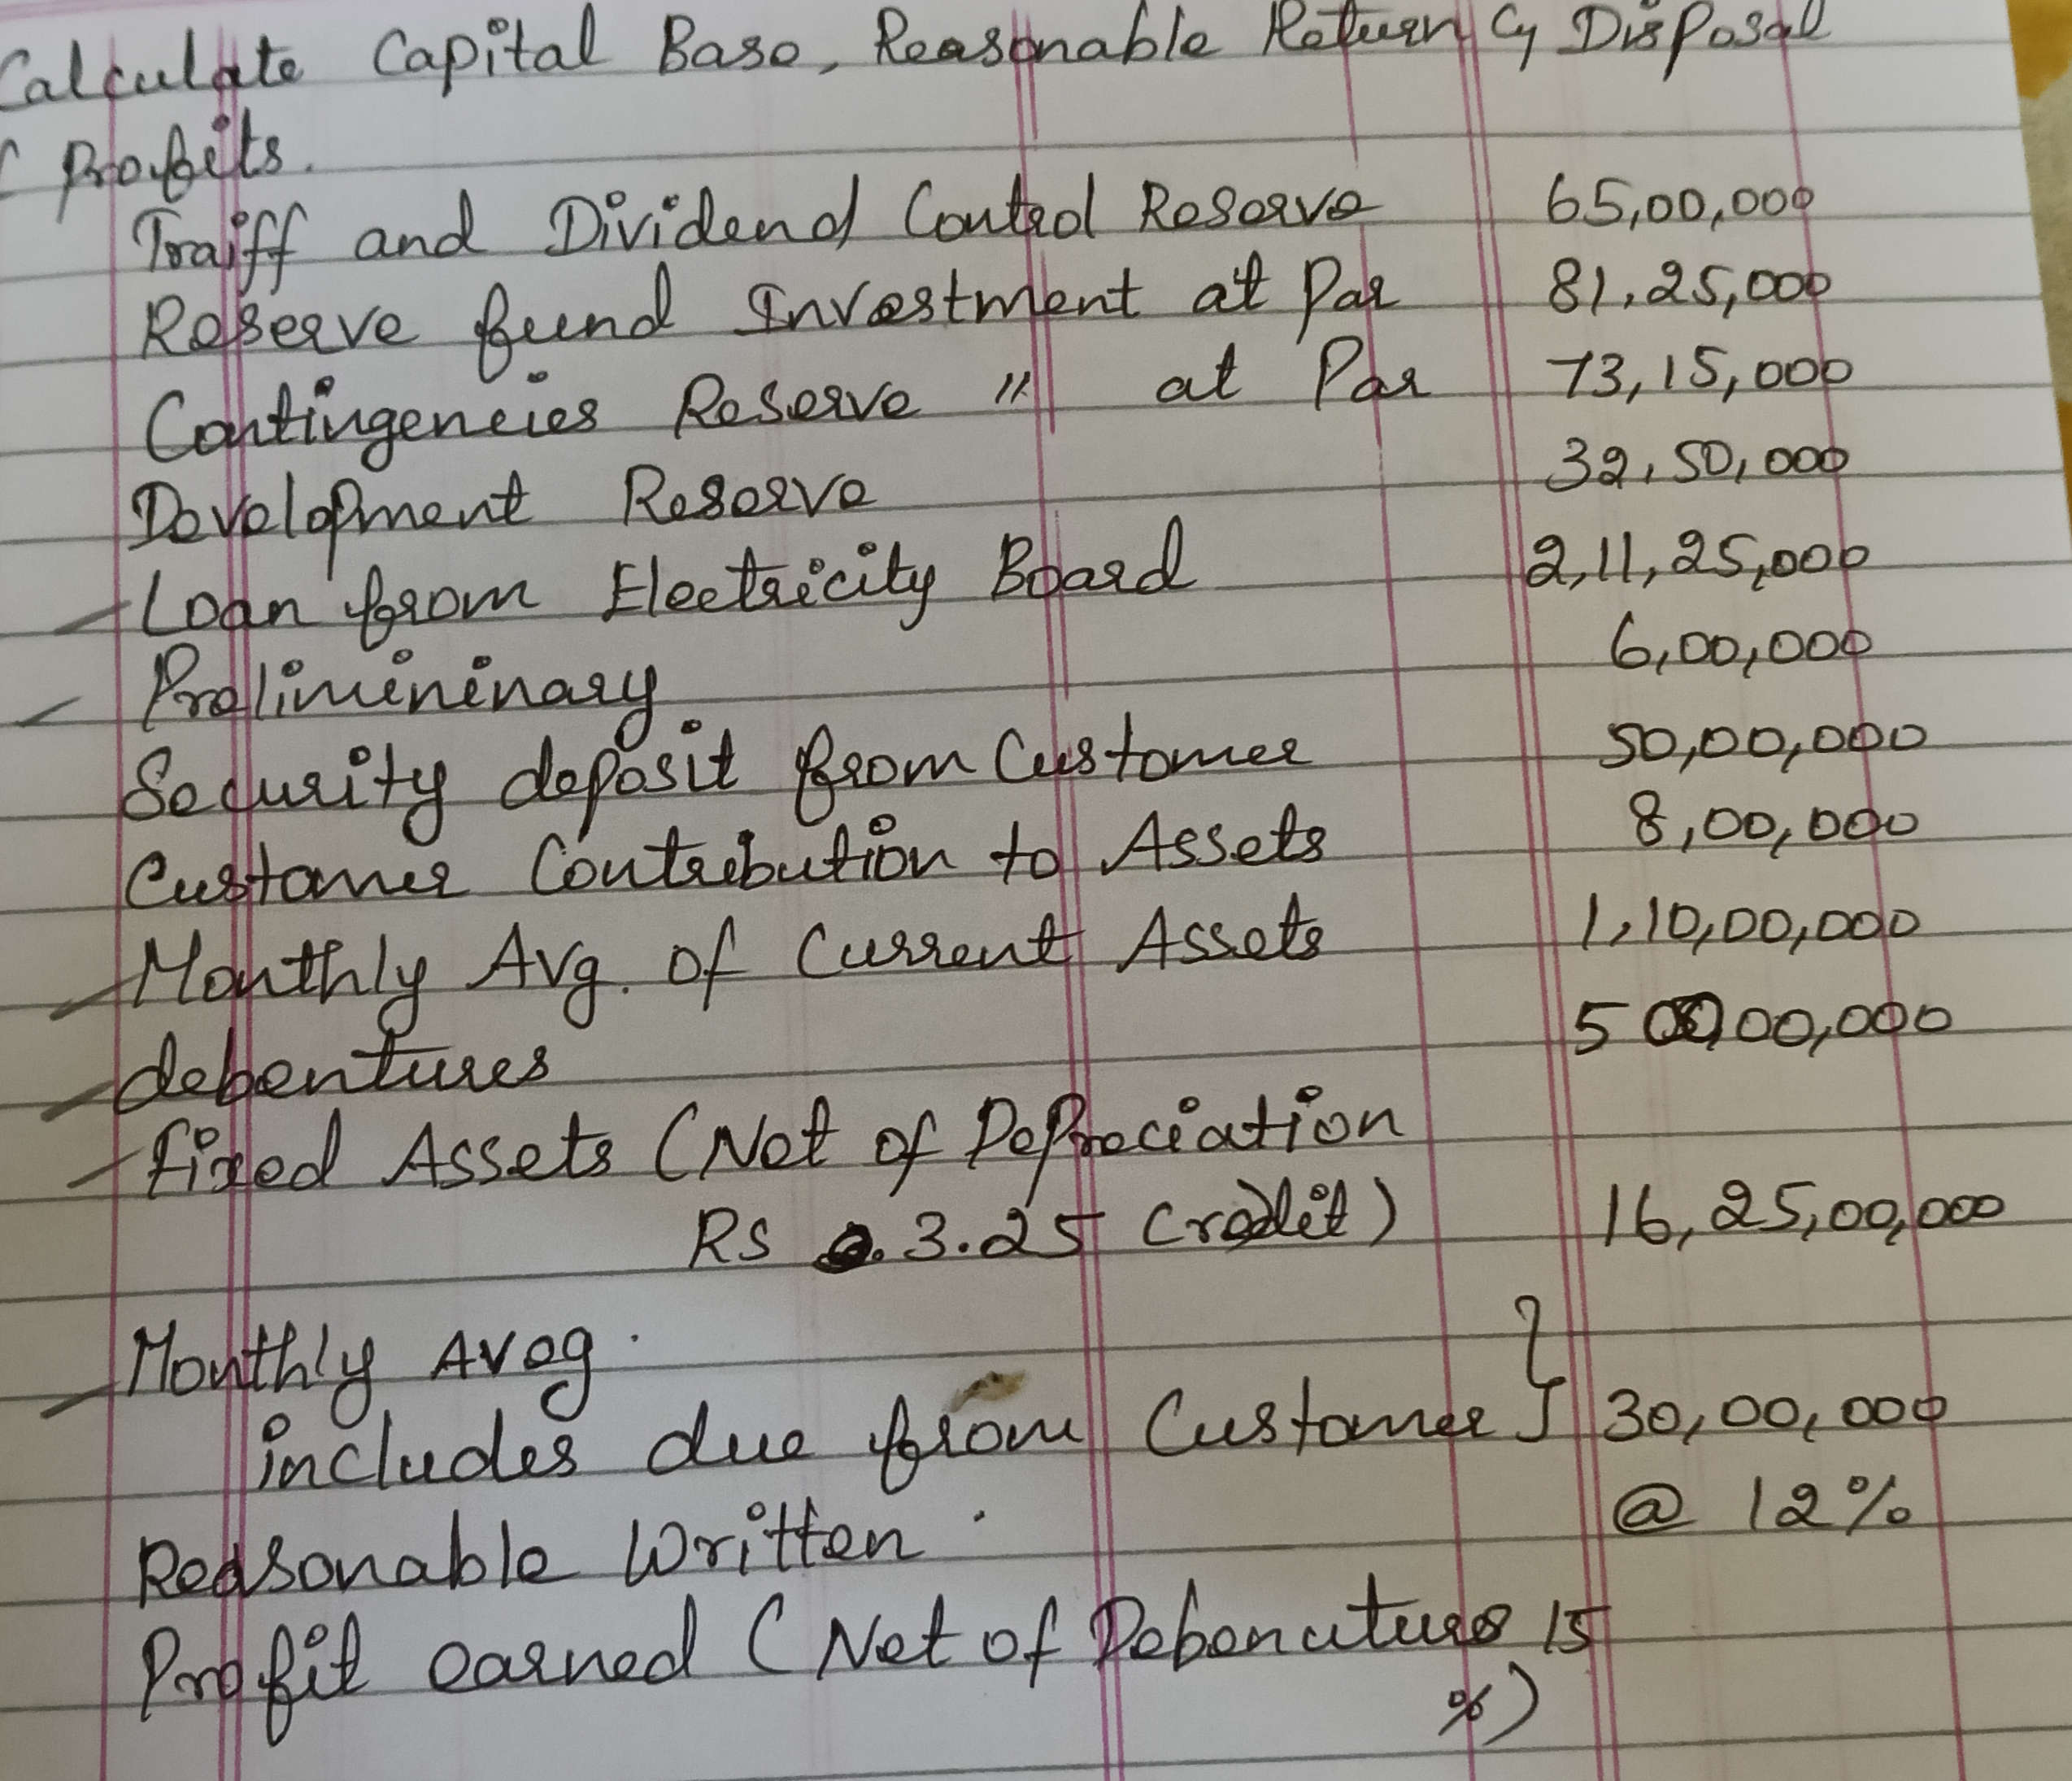 Calculate Capital Base, Reasonable Return & Disposal
f Profits.
Traiff and Dividend Control Reserve 65,00,000
Reserve fund Investment at Par 81,25,000
Contingencies Reserve " at Par 73,15,000
Development Reserve 32,50,000
Loan from Electricity Board 2,11,25,000
Prelimininary 6,00,000
Security deposit from Customer 50,00,000
Customer Contribution to Assets 8,00,000
Monthly Avg. of Current Assets 1,10,00,000
debentures
Fixed Assets (Net of Depreciation
RS 3.25 Credit) 16,25,00,000
Monthly Aveg.
includes due from Customer } 30,00,000
Reasonable Written. @ 12%
Profit earned (Net of Debenutures 15
%)